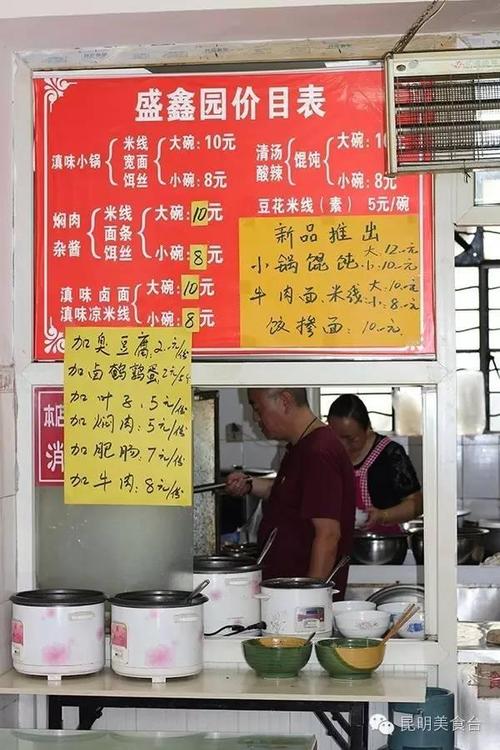 盛鑫园价目表
滇味小锅 米线 宽面 饵丝 大碗:10元 小碗:8元
清汤 酸辣 馄饨 大碗:10 小碗:8元
豆花米线(素) 5元/碗
焖肉 杂酱 米线 面条 饵丝 大碗:10元 小碗:8元
滇味卤面 大碗:10元
滇味凉米线 小碗:8元
新品推出
小锅馄饨 大:12元 小:10元
牛肉面米线 大:10元 小:8元
饺掺面:10元
加臭豆腐:2元/份
加卤鹌鹑蛋2元/5个
加叶子:5元/份
加焖肉:5元/份
加肥肠:7元/份
加牛肉:8元/份
本店
消
昆明美食台